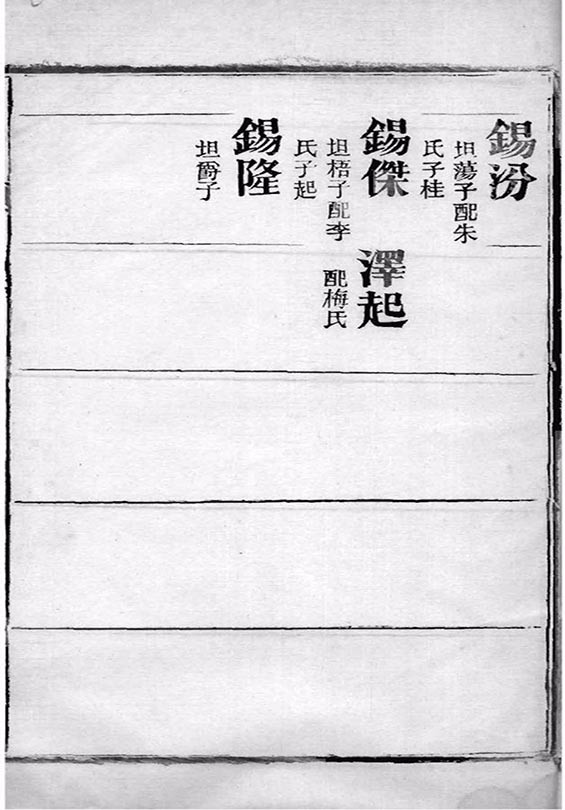 錫汾
坦蕩子配朱
氏子桂
錫傑
坦梧子配李
氏子起
澤起
配梅氏
錫隆
坦爵子